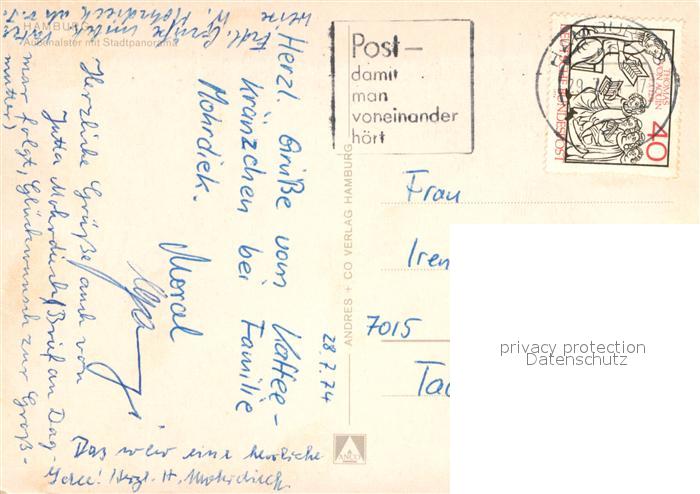 HAMBURG
Außenalster mit Stadtpanorama
28.7.74
Herzl. Grüße vom Kaffee-
kränzchen bei Familie
Mohrdiek.
Moral
Herzliche Grüße auch von
Jutta Mohrdieck (Brief an Dag-
mar folgt, Glückwunsch zur Groß-
mutter)
Das war eine herrliche
Idee! Herzl. H. Mohrdieck
ANDRES + CO VERLAG HAMBURG
ANCO
Post –
damit
man
voneinander
hört
THOMAS
VON AQUIN
DEUTSCHE BUNDESPOST
40
Frau
Iren
7015
privacy protection
Datenschutz